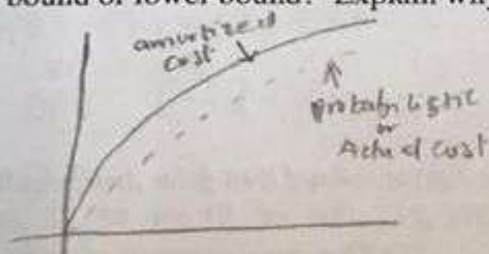 bound or lower bound? Explain why
amortized
cost
probabilistic
or
Actual cost